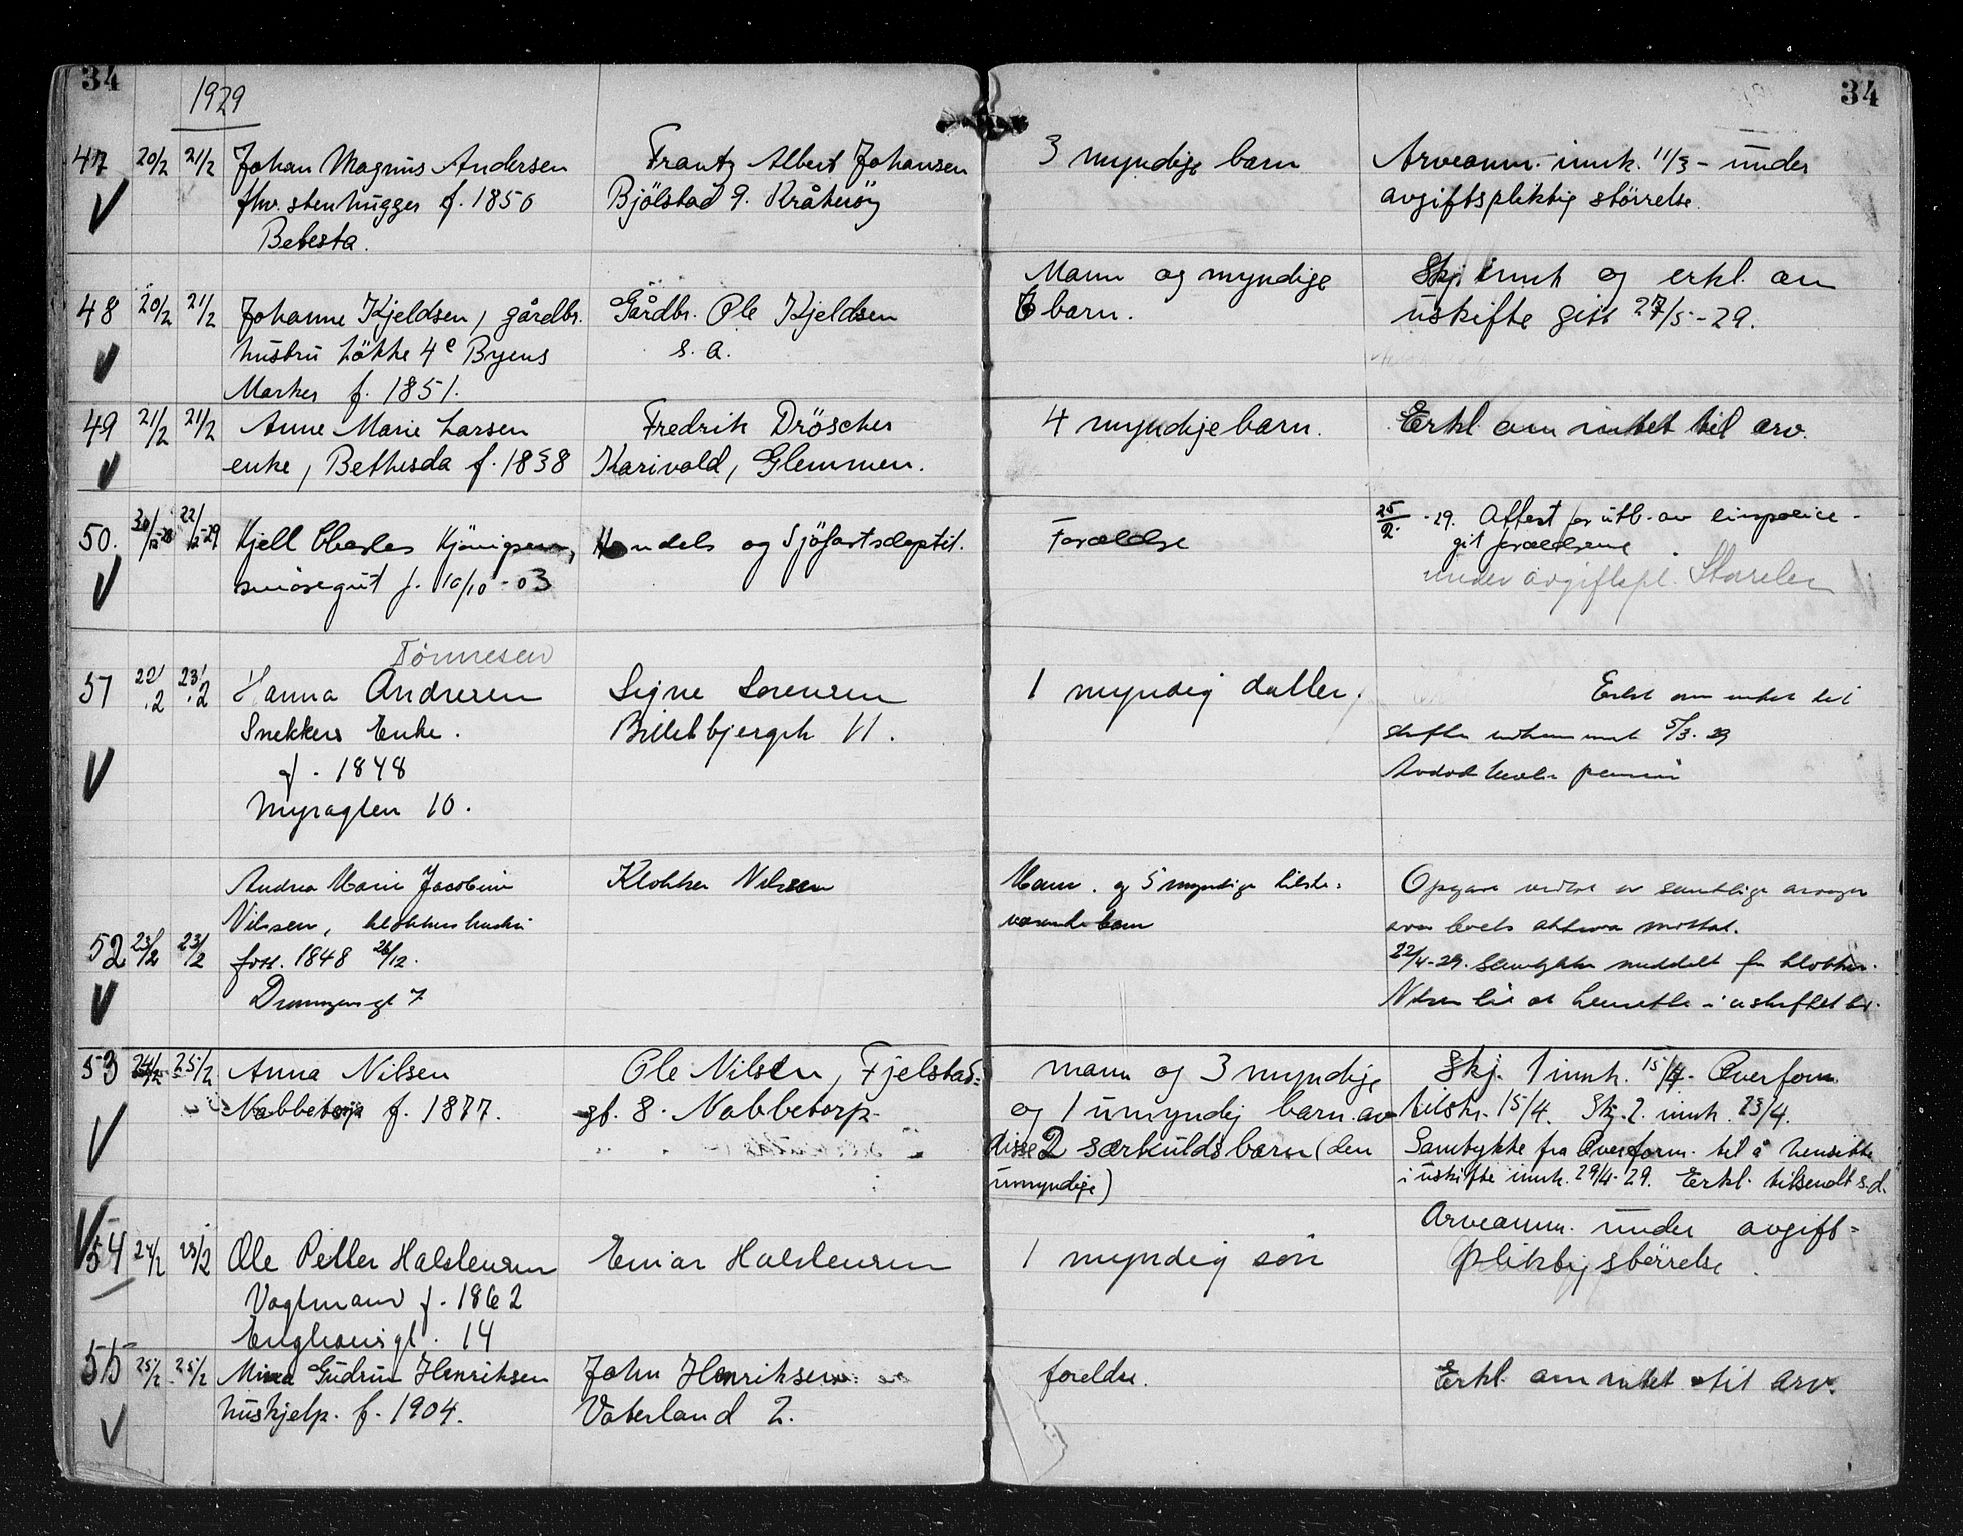 34
1929
34
47 20/2 21/2 Johan Magnus Andersen Frantz Albert Johansen 3 myndige barn Arveanm. innk. 11/3 - under
fhv. stenhugger f. 1850 Bjölstad 9. Kråkeröy avgiftspliktig störrelse.
Betesta.
Mann og myndige Skj. innk og erkl. om
48 20/2 21/2 Johanne Kjeldsen, gårdbr. Gårdbr. Ole Kjeldsen 6 barn. uskifte gitt 27/5-29.
hustru Lökke 4e Byens s. a.
Marker f. 1851.
49 21/2 21/2 Anne Marie Larsen Fredrik Dröscher 4 myndige barn. Erkl. om intet til arv.
enke, Bethesda f. 1838 Karivold, Glemmen.
50. 30/12-28 22/2-29 Kjell Charles Kjönigsen, Handels og Sjöfartsdeptet. Forældre 25/2. -29. Attest for utb. av
smöregut f. 10/10-03 git forældrene
under avgiftspl. Störrelse
Tönnesen
51 22/2 23/2 Hanna Andresen Signe Sorensen 1 myndig datter. Erkl om intet til
Snekkers Enke. Billetbjergsk 11. skifte innkommet 5/3.29
f. 1848
Nygagten 10.
Andrea Marie Jacobine Klokker Nilssen Mann. og 5 myndige tilste- Opgave over samtlige arvinger
Nilssen, klokkers hustru værende barn over boets aktiva mottat.
52 23/2 23/2 föd. 1848 26/12. 22/4-29. Samtykke meddelt for klokker
Dronningensgt 7 Nilsen til at hensette i uskiftet bo.
53 24/2 25/2 Anna Nilsen Ole Nilsen, Fjelstad- mann og 3 myndige Skj. 1 innk. 15/4. Overform.
Nabbetorp f. 1877. gt. 8. Nabbetorp. og 1 umyndig barn. av tilskr. 15/4. Skj. 2. innk. 23/4.
disse 2 særkulds barn (den Samtykke fra Overform. til å hensitte
umyndige) i uskifte innk. 29/4-29. Erkl. tilsendt s.d.
Arveanm. under avgift-
54 24/2 25/2 Ole Petter Halstensen Einar Halstensen 1 myndig sön pliktig störrelse.
Vagtmand f. 1862
Enghausgt. 14
55 25/2 25/2 Minda Gudrun Henriksen John Henriksen foreldre. Erkl. om intet til arv.
hushjelp. f. 1904. Vaterland 2.